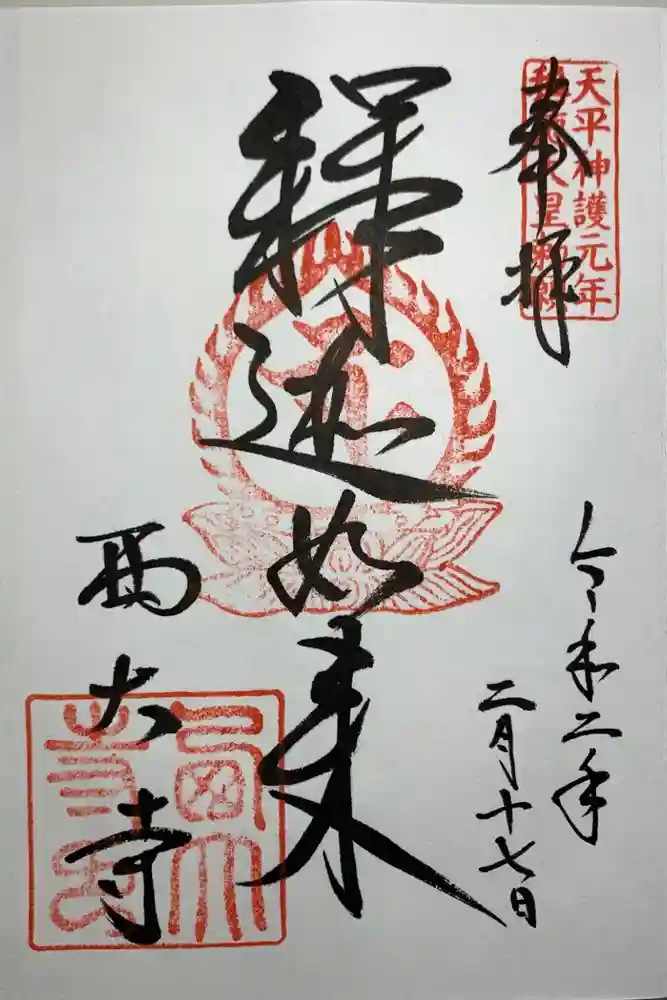 奉拝
天平神護元年
称徳天皇勅願
釋迦如来
令和二年
二月十七日
西大寺